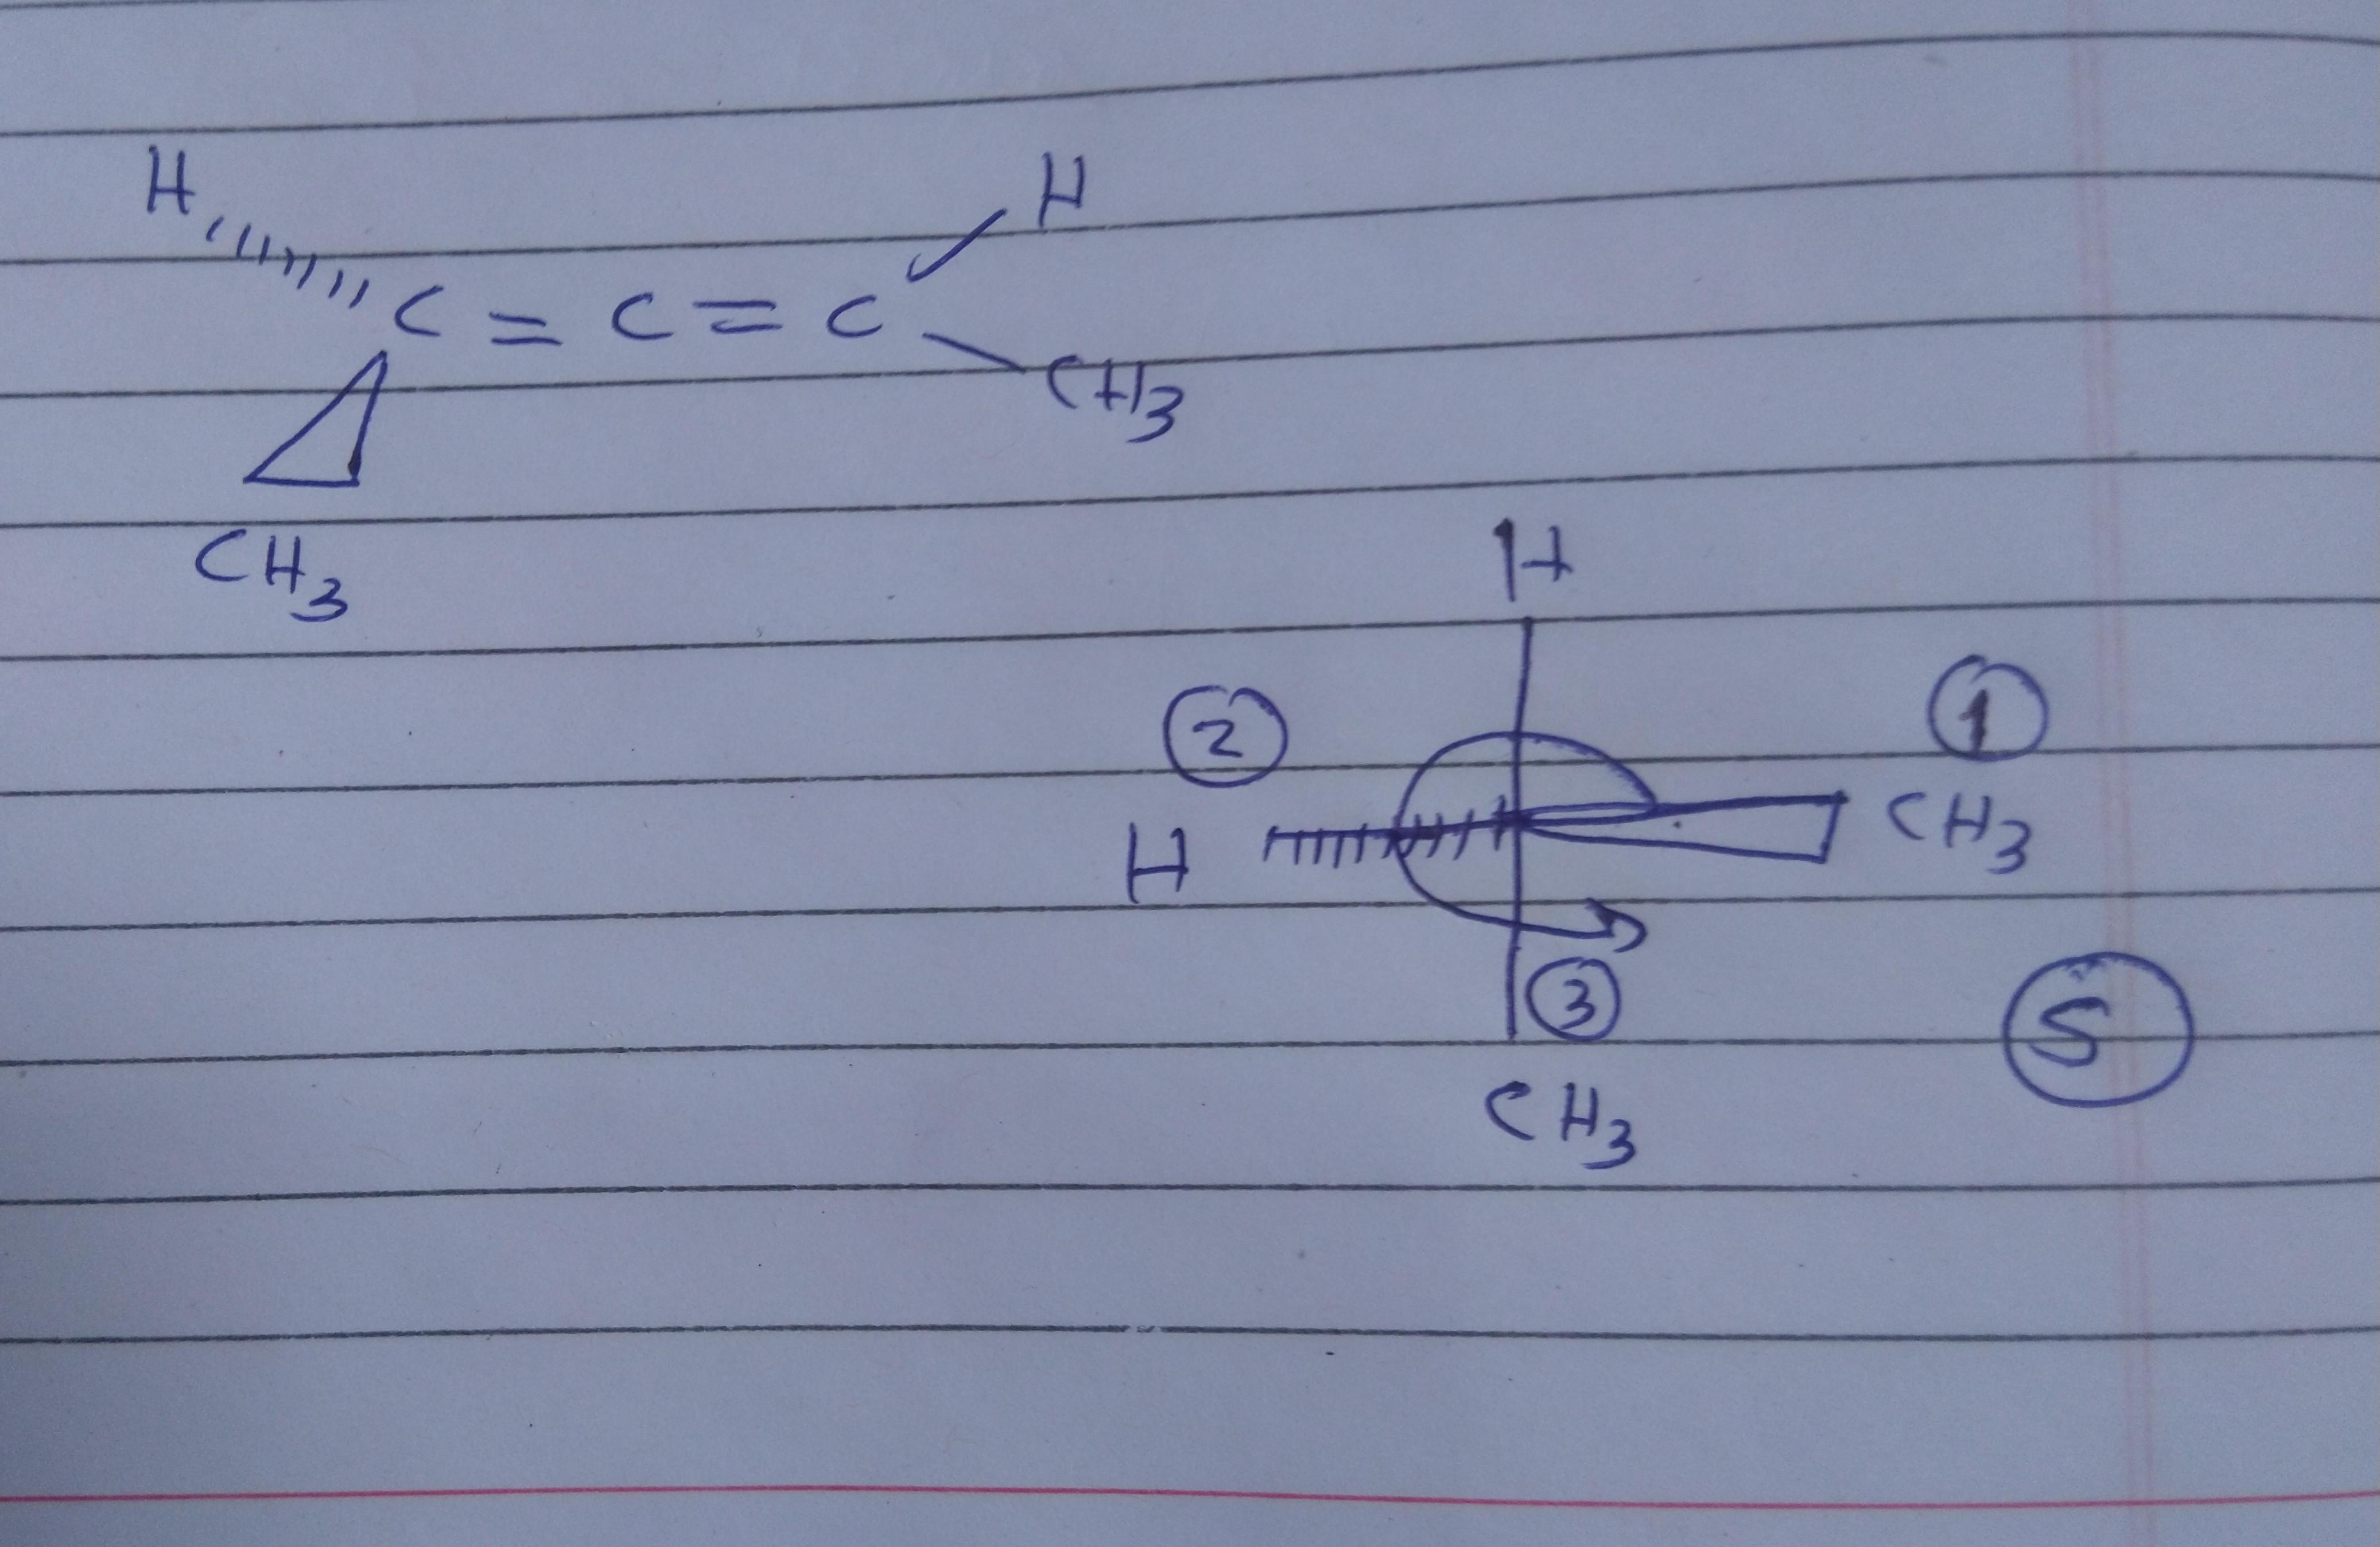 H H
C = C = C
CH3
CH3
H
2 1
H CH3
3
S
CH3